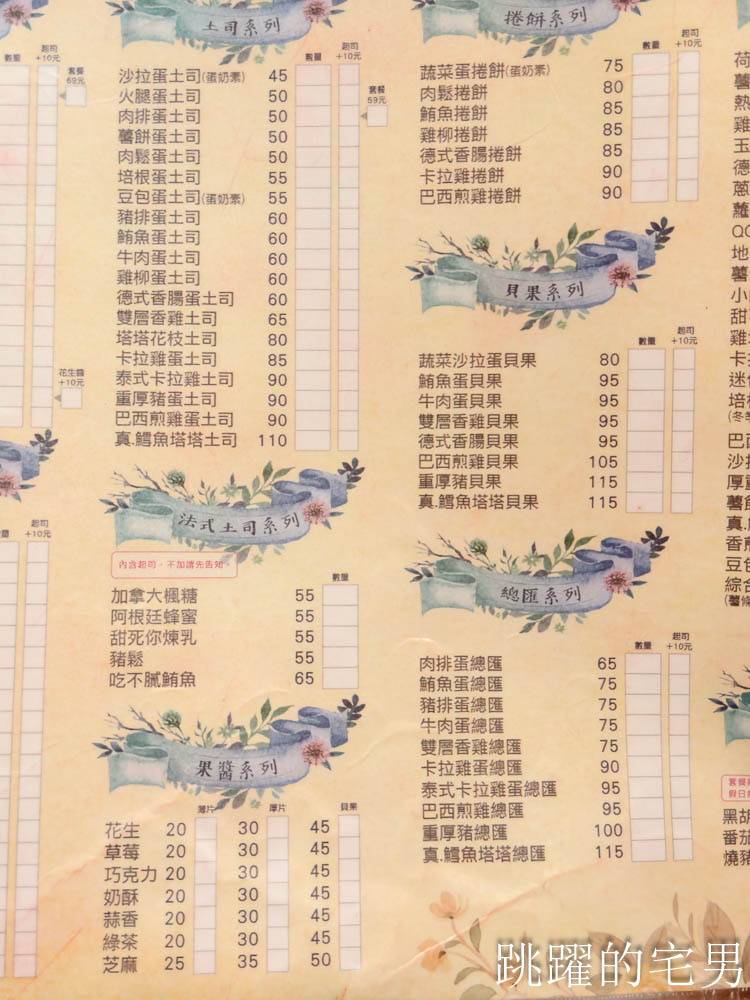 數量
起司
+10元
套餐
69元
花生醬
+10元
起司
+10元
數量
土司系列
數量
起司
+10元
套餐
59元
沙拉蛋土司(蛋奶素) 45
火腿蛋土司 50
肉排蛋土司 50
薯餅蛋土司 50
肉鬆蛋土司 50
培根蛋土司 55
豆包蛋土司(蛋奶素) 55
豬排蛋土司 60
鮪魚蛋土司 60
牛肉蛋土司 60
雞柳蛋土司 60
德式香腸蛋土司 60
雙層香雞土司 65
塔塔花枝土司 80
卡拉雞蛋土司 85
泰式卡拉雞土司 90
重厚豬蛋土司 90
巴西煎雞蛋土司 90
真.鱈魚塔塔土司 110
法式土司系列
內含起司，不加請先告知。
數量
加拿大楓糖 55
阿根廷蜂蜜 55
甜死你煉乳 55
豬鬆 55
吃不膩鮪魚 65
果醬系列
薄片 厚片 貝果
花生 20 30 45
草莓 20 30 45
巧克力 20 30 45
奶酥 20 30 45
蒜香 20 30 45
綠茶 20 30 45
芝麻 25 35 50
捲餅系列
數量
起司
+10元
蔬菜蛋捲餅(蛋奶素) 75
肉鬆捲餅 80
鮪魚捲餅 85
雞柳捲餅 85
德式香腸捲餅 85
卡拉雞捲餅 90
巴西煎雞捲餅 90
貝果系列
數量
起司
+10元
蔬菜沙拉蛋貝果 80
鮪魚蛋貝果 95
牛肉蛋貝果 95
雙層香雞貝果 95
德式香腸貝果 95
巴西煎雞貝果 105
重厚豬貝果 115
真.鱈魚塔塔貝果 115
總匯系列
數量
起司
+10元
肉排蛋總匯 65
鮪魚蛋總匯 75
豬排蛋總匯 75
牛肉蛋總匯 75
雙層香雞總匯 75
卡拉雞蛋總匯 90
泰式卡拉雞蛋總匯 95
巴西煎雞蛋總匯 95
重厚豬總匯 100
真.鱈魚塔塔總匯 115
荷
薯
熱
雞
玉
德
蔥
蘿
QQ
地
薯
小
甜
雞
卡
迷
培
(冬季
巴
沙拉
厚
薯
真.
香煎
豆包
綜合
(薯條
套餐
假日
黑胡
番茄
燒豬
跳躍的宅男